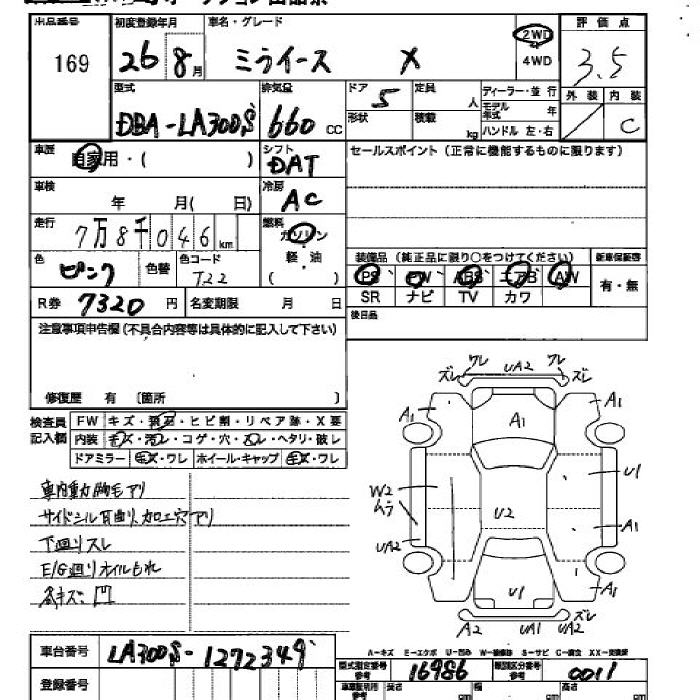 出品番号 初度登録年月 車名・グレード 評価点
169 26 8月 ミライース X 2WD 4WD 3.5
型式 排気量 ドア 5 定員 人 ディーラー・並行 外装 内装
DBA-LA300S 660 cc 形状 積載 kg モデル年式 年 ハンドル 左・右 C
車歴 自家用・( ) シフト DAT セールスポイント (正常に機能するものに限ります)
車検 年 月( 日) 冷房 AC
走行 7万8千046km 燃料 ガソリン
色 ピンク 色替 色コード T22 軽・油 ( ) 装備品 (純正品に限り○をつけてください) 新車保証書
PS PW ABS エアB AW 有・無
R券 7320円 名変期限 月 日 SR ナビ TV カワ
注意事項申告欄(不具合内容等は具体的に記入して下さい) 後日品
修復歴 有 〔箇所 〕
検査員記入欄 FW キズ・飛石・ヒビ割・リペア跡・X要
内装 キズ・汚レ・コゲ・穴・スレ・ヘタリ・破レ
ドアミラー キズ・ワレ ホイール・キャップ キズ・ワレ
ワレ UA2 ワレ
ズレ ズレ
A1 A1 A1
U1
W2 ムラ U2 A1
UA2
A1
U1 ズレ
A2 UA1 UA2
サイドシル 曲り、加工穴アリ
下廻りスレ
E/G廻りオイルもれ
各キズ・凹
A-キズ E-エクボ U-凹み W-補修跡 S-サビ C-腐食 XX-交換済
車台番号 LA300S-1272349 型式指定番号 参考 16986 類別区分番号 参考 0011
登録番号 長さ cm 幅 cm 高さ cm